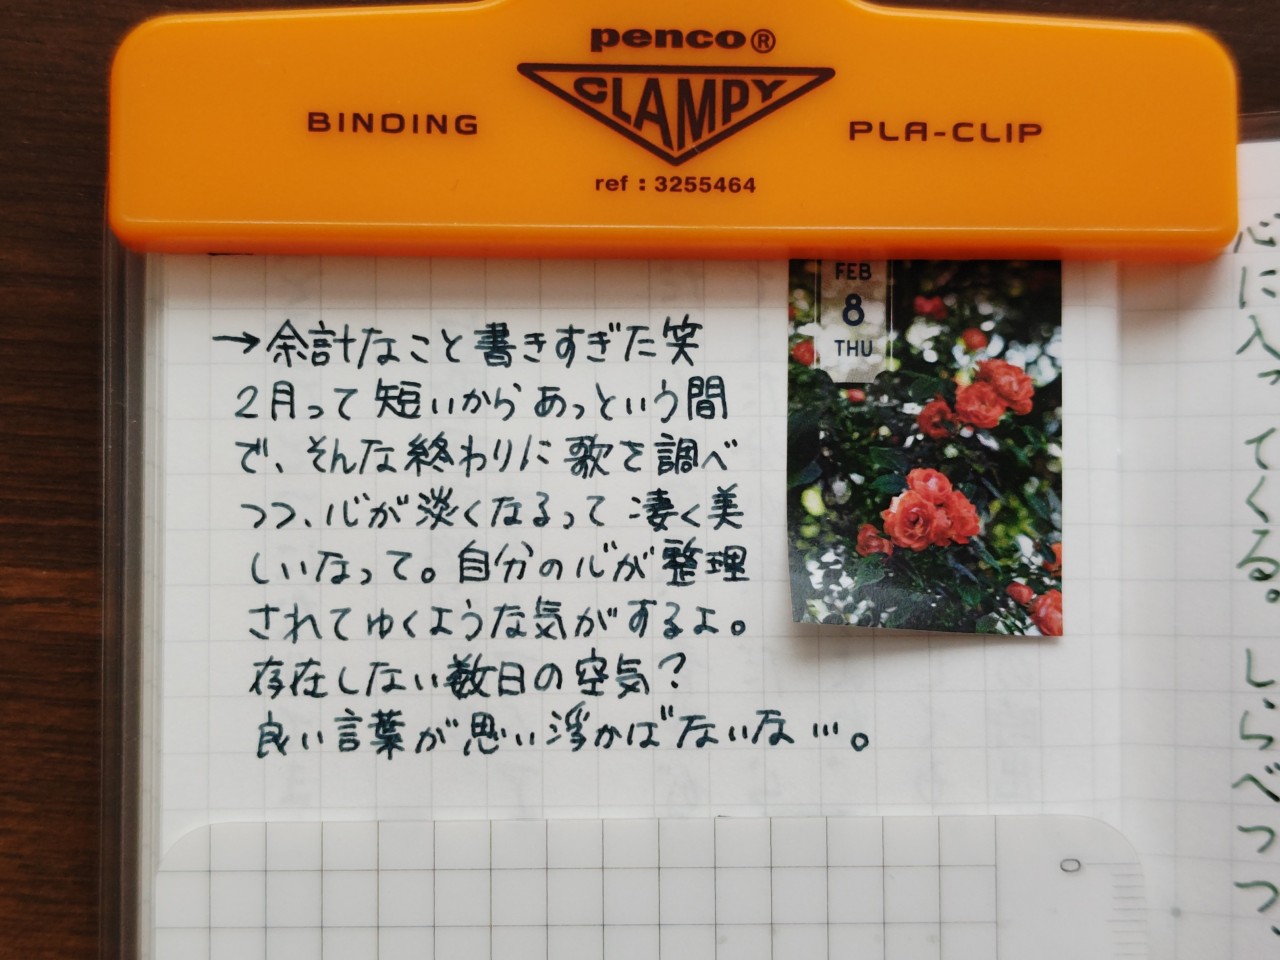 penco®
CLAMPY
BINDING
PLA-CLIP
ref : 3255464
FEB
8
THU
→余計なこと書きすぎた笑
2月って短いからあっという間
で、そんな終わりに歌を調べ
つつ、心が淡くなるって凄く美
しいなって。自分の心が整理
されてゆくような気がするよ。
存在しない数日の空気?
良い言葉が思い浮かばないな…。
心に入ってくる。しらべつつ、
0